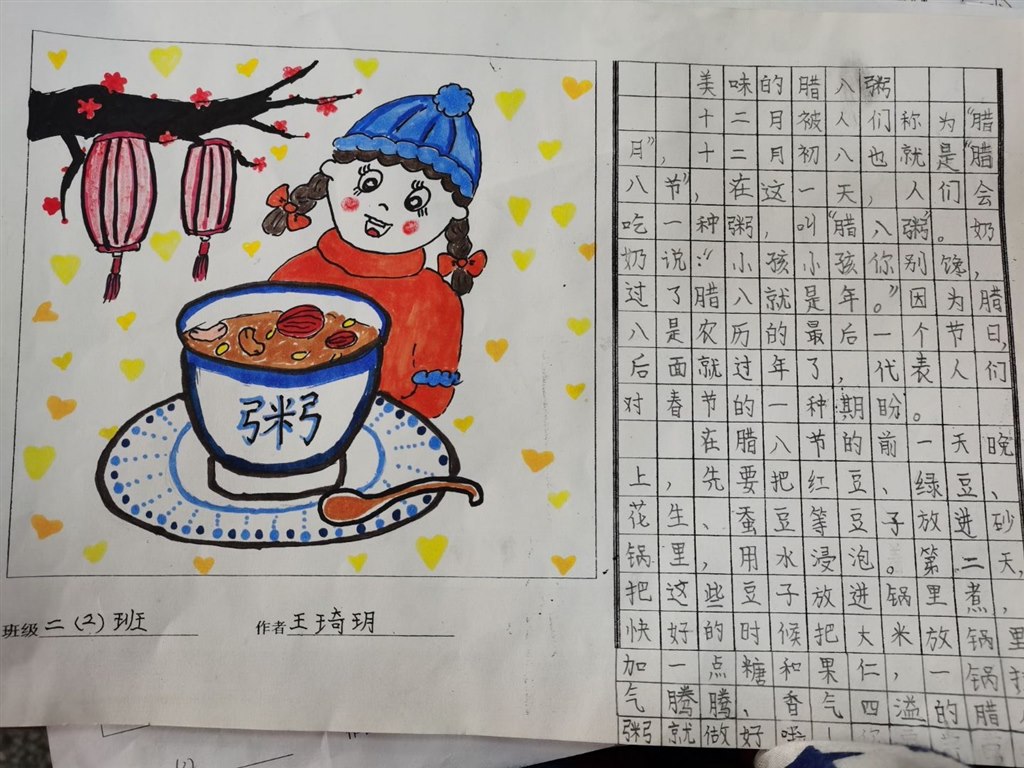 粥
班级 二（2）班
作者 王琦玥
美味的腊八粥
十二月被人们称为“腊
月”，十二月初八也就是“腊
八节”，在这一天，人们会
吃一种粥，叫“腊八粥”。奶
奶说：“小孩小孩你别馋，
过了腊八就是年。”因为腊
八是农历的最后一个节日，
后面就过年了，代表人们
对春节的一种期盼。
在腊八节的前一天晚
上，先要把红豆、绿豆、
花生、蚕豆等豆子放进砂
锅里，用水浸泡。第二天，
把这些豆子放进锅里煮，
快好的时候把大米放锅里
加一点糖和果仁，一锅
气腾腾、香气四溢的腊
粥就做好啦！